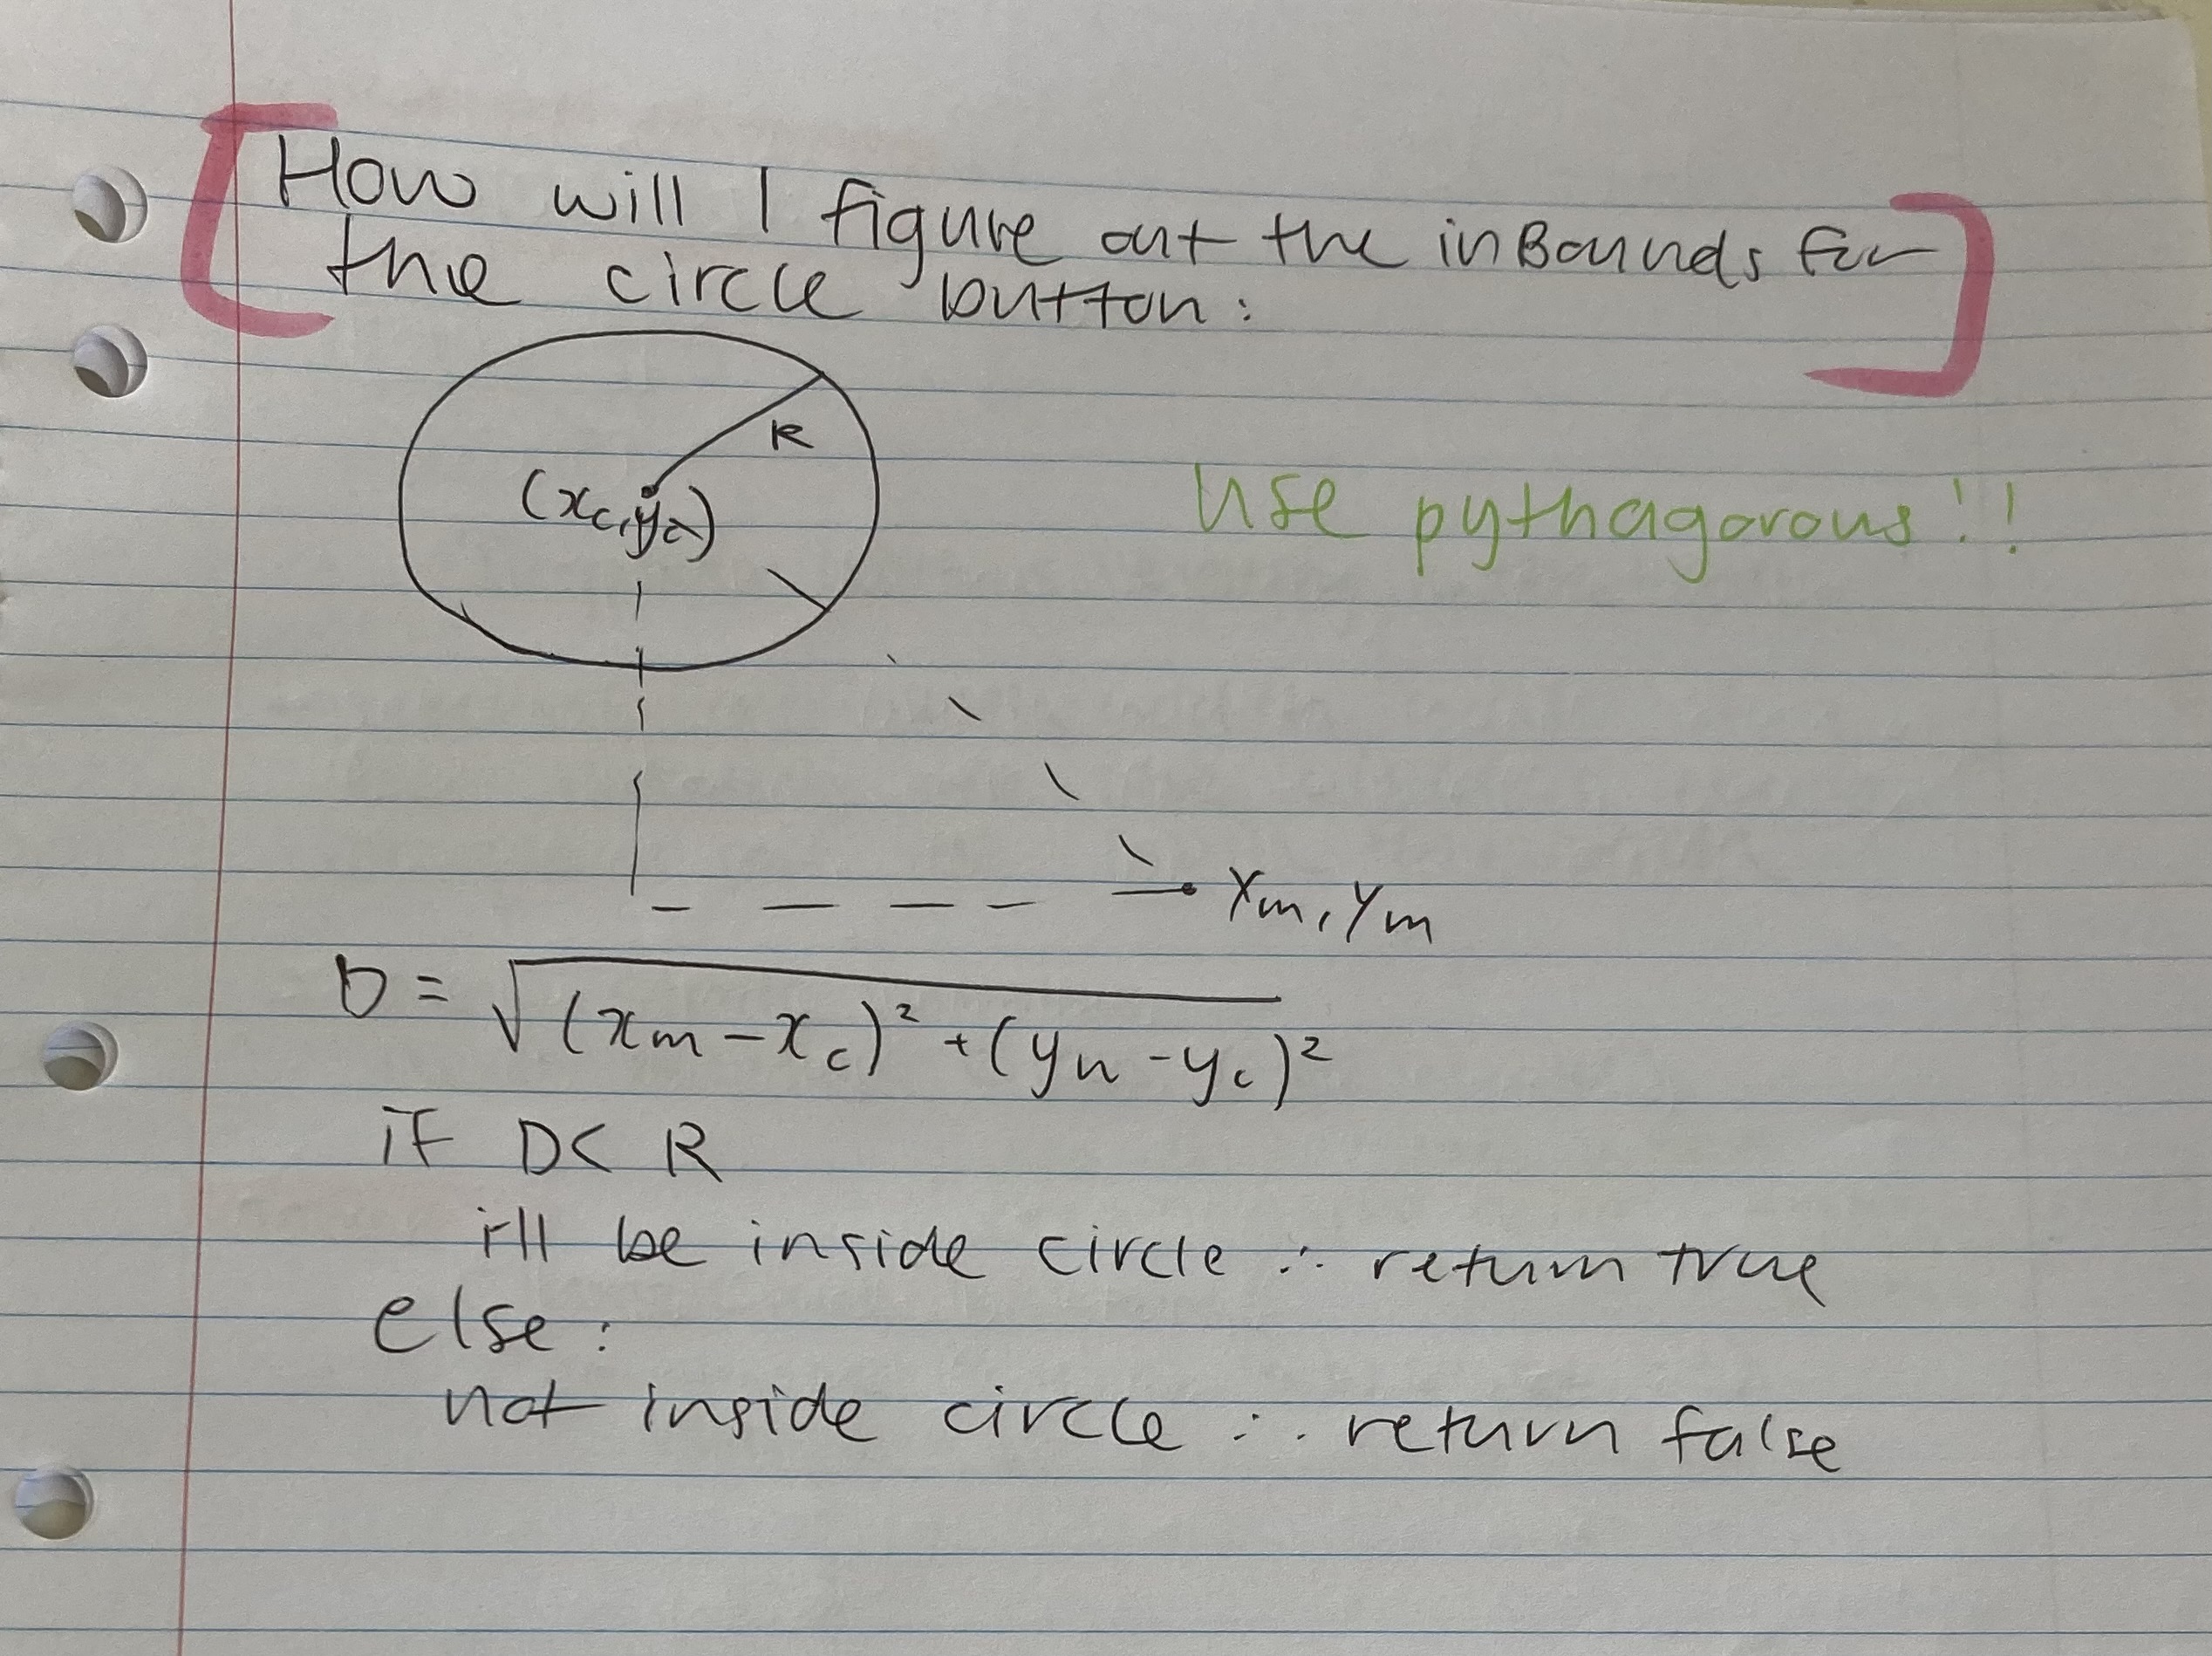 How will I figure out the inBounds for
the circle button:
R
(xc,yc)
use pythagorous!!
Xm, Ym
D = √(xm - xc)² + (yn - yc)²
if D < R
i'll be inside circle ∴ return true
else:
not inside circle ∴ return false